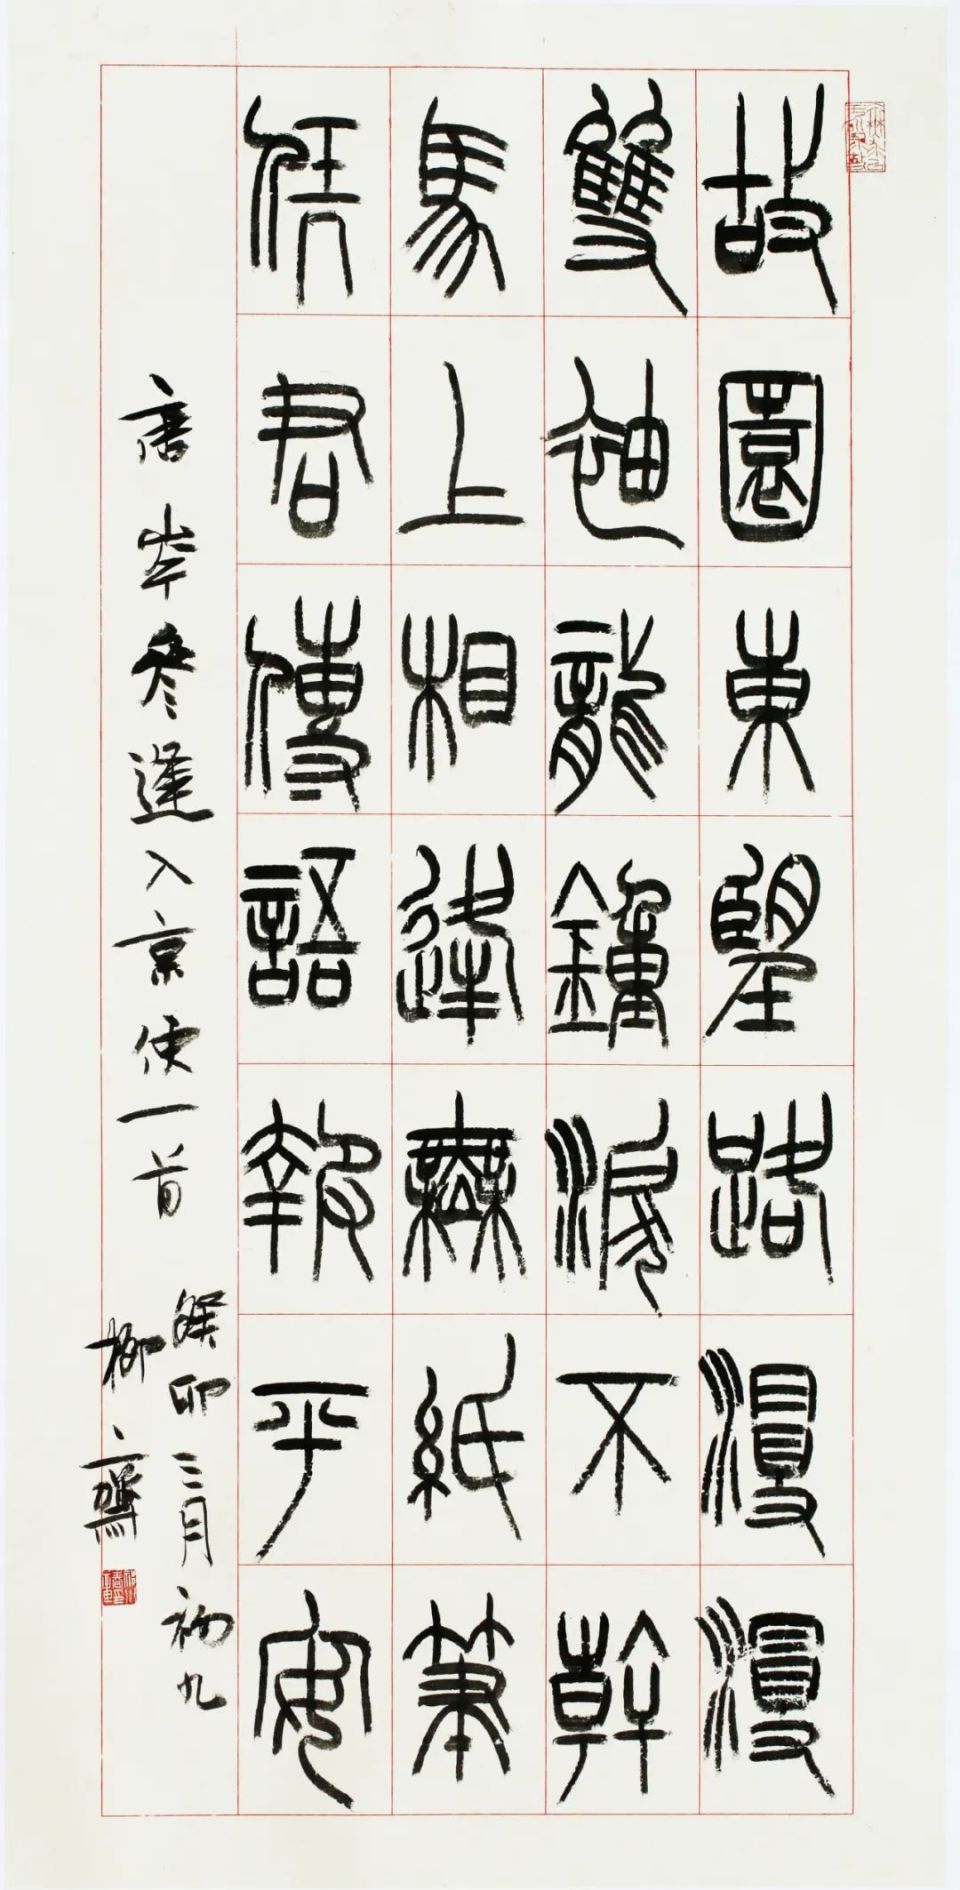 故園東望路漫漫
雙袖龍鍾淚不幹
馬上相逢無紙筆
凭君傳語報平安
唐岑參逢入京使一首
癸卯三月初九
柳齋